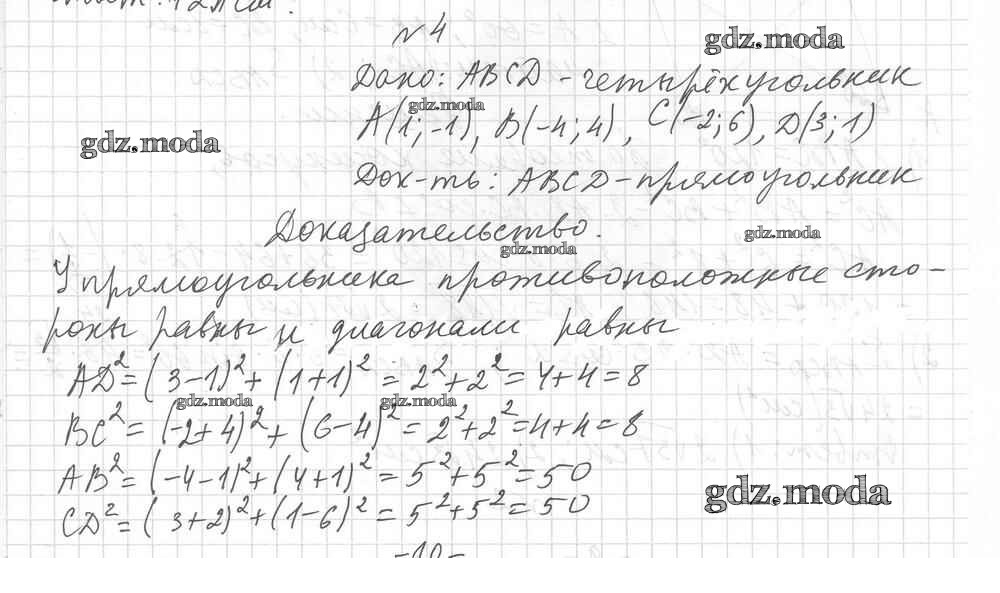 №4
gdz.moda
Дано: ABCD - четырёхугольник
gdz.moda
A(1; -1), B(-4; 4), C(-2; 6), D(3; 1)
gdz.moda
Док-ть: ABCD - прямоугольник
Доказательство.
gdz.moda
gdz.moda
У прямоугольника противоположные сто-
роны равны и диагонали равны
AD² = (3-1)² + (1+1)² = 2² + 2² = 4+4 = 8
gdz.moda
gdz.moda
BC² = (-2+4)² + (6-4)² = 2² + 2² = 4+4 = 8
AB² = (-4-1)² + (4+1)² = 5² + 5² = 50
gdz.moda
CD² = (3+2)² + (1-6)² = 5² + 5² = 50
-10-